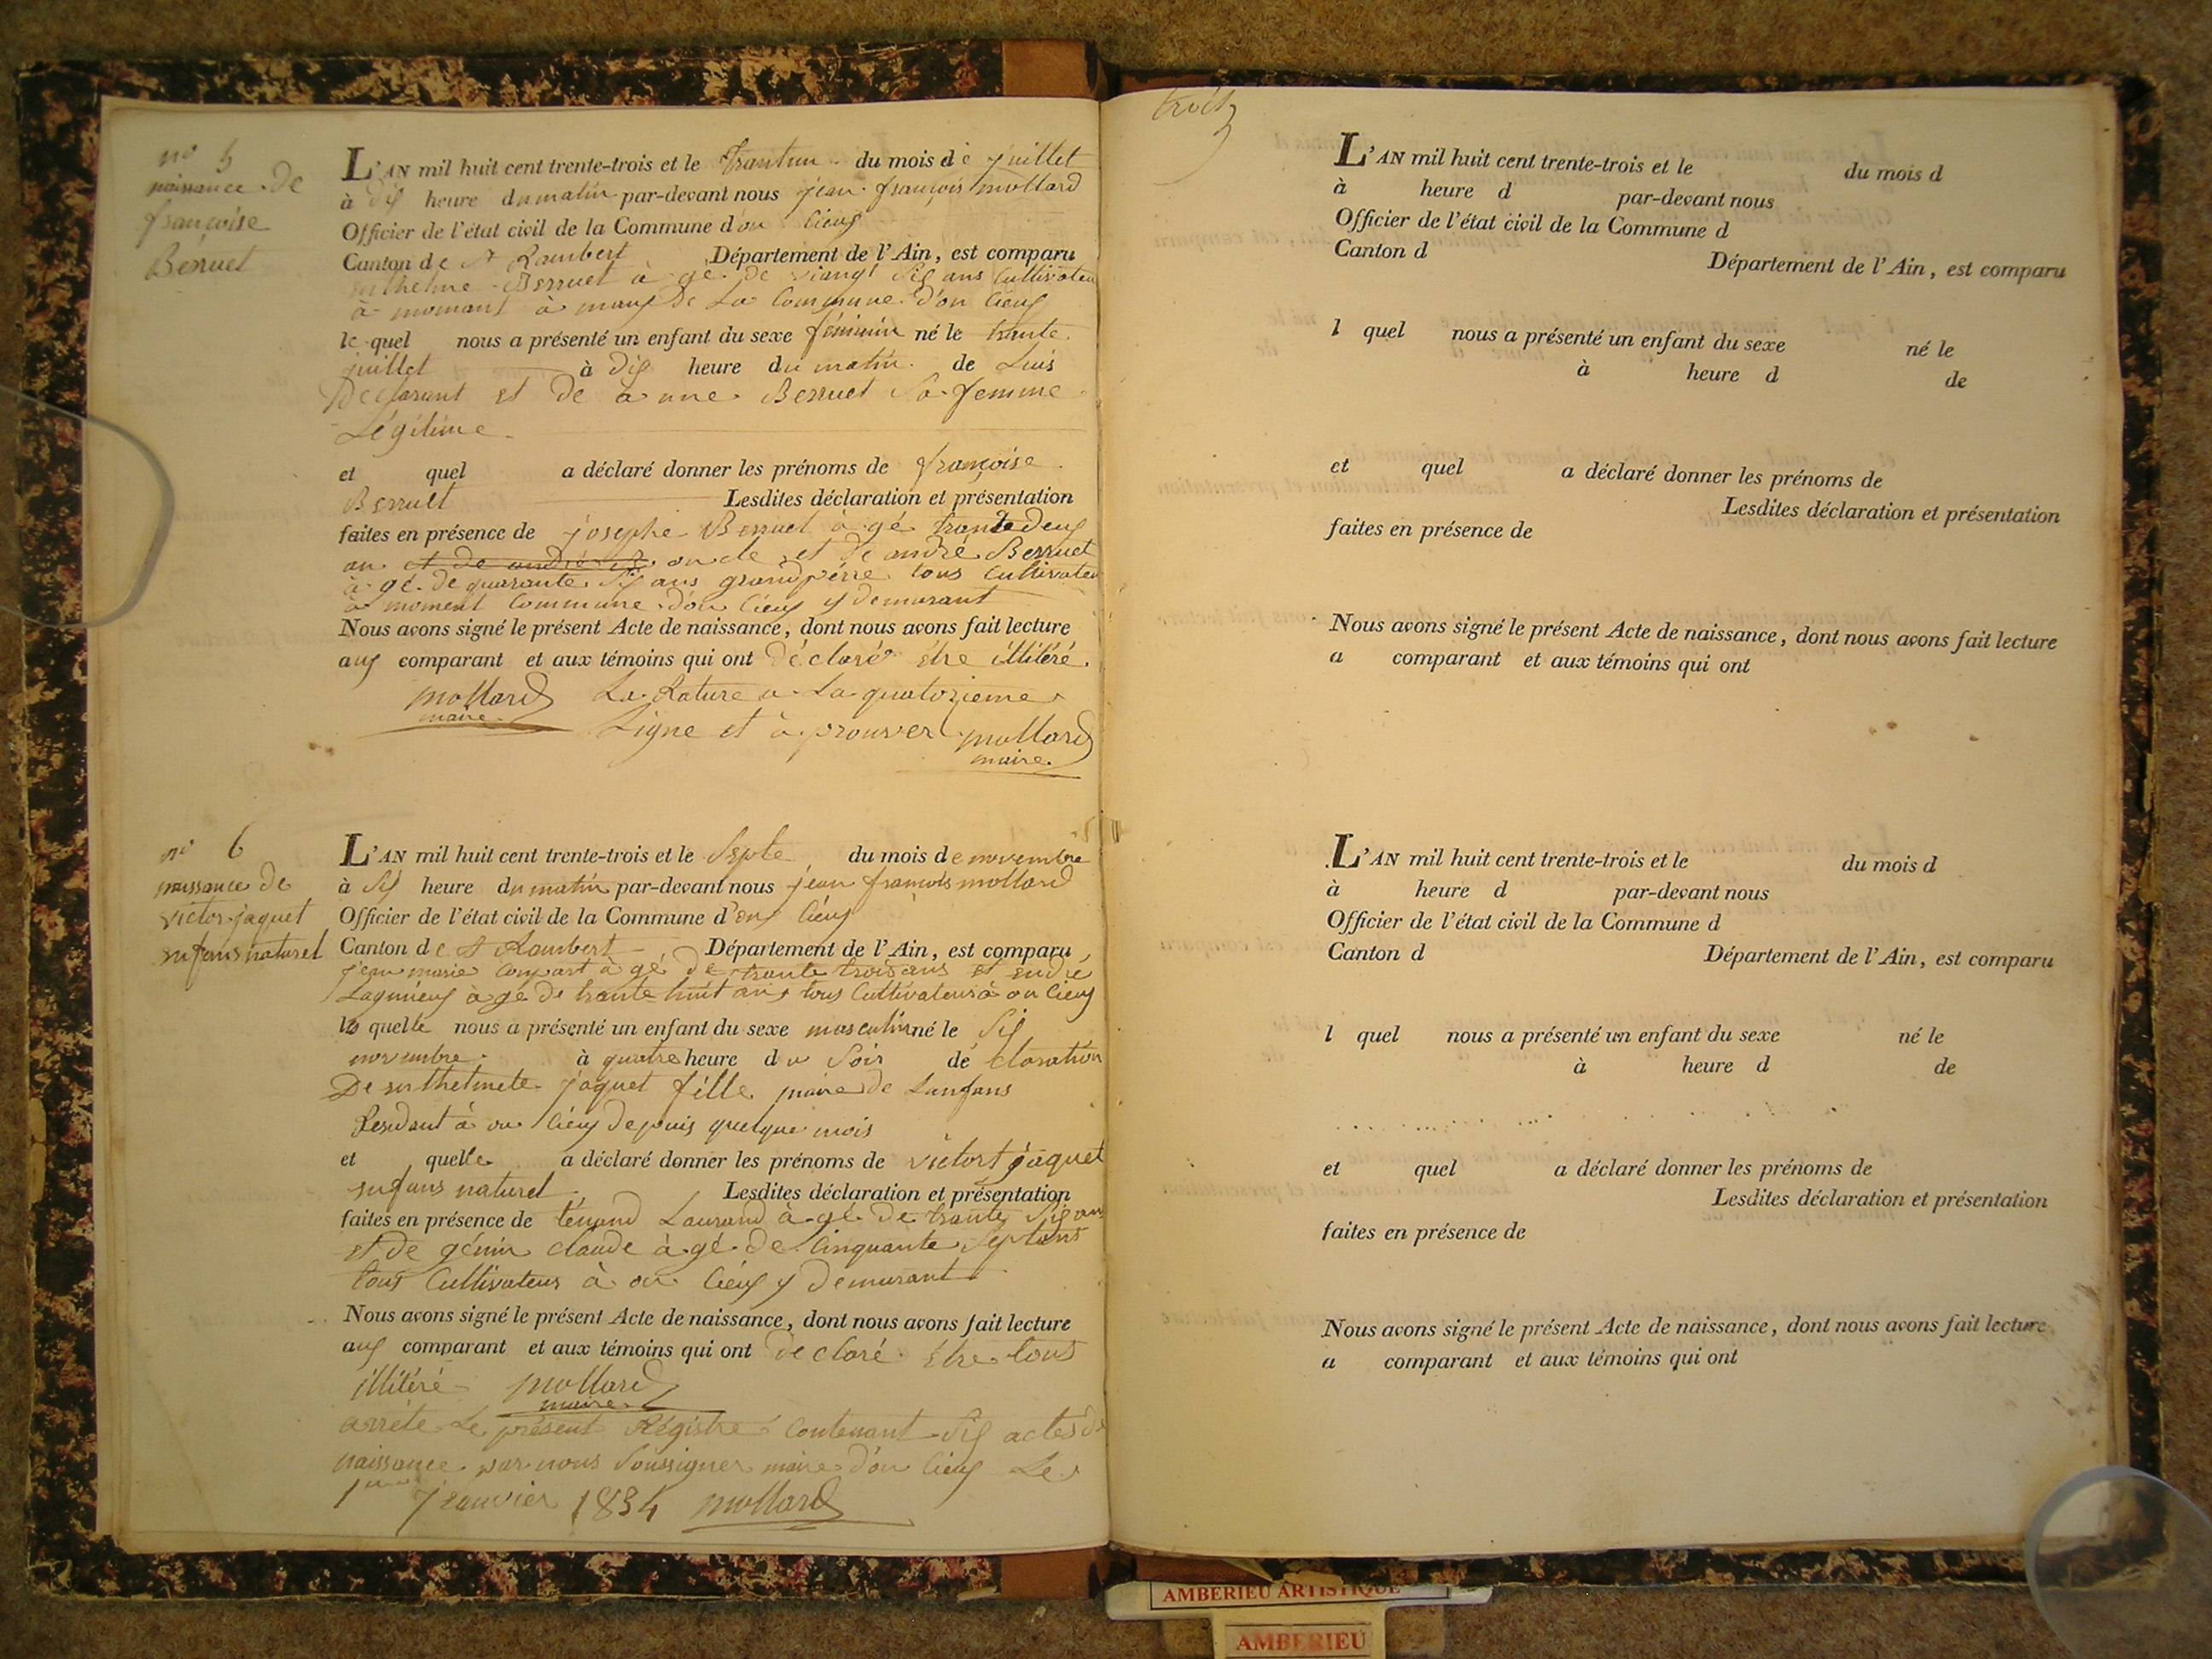 nº 5
naissance de
françoise
Berruet
L'AN mil huit cent trente-trois et le trantun du mois de juillet
à dix heure du matin par-devant nous jean françois mollard
Officier de l'état civil de la Commune d'on cieux
Canton de St Rambert Département de l'Ain, est comparu
Berruet à gé de viangt six ans Cultivateu
à momant à maux de La Commune d'on cieux
le quel nous a présenté un enfant du sexe féminin né le trante
juillet à dix heure du matin de Luis
Déclarant et de anne Berruet Sa femme
Légitime
et quel a déclaré donner les prénoms de françoise
Berruet Lesdites déclaration et présentation
faites en présence de josephe Berruet à gé trante deux
an oncle et de andré Berruet
à gé de quarante six ans grand pérre tous Cultivateu
à moment Commune d'on cieux y demurant
Nous avons signé le présent Acte de naissance, dont nous avons fait lecture
aux comparant et aux témoins qui ont déclaré être illitéré.
mollard La Rature a La quatorzieme
maire
Ligne et à prouver mollard
maire
nº 6
naissance de
victor jaquet
enfans naturel
L'AN mil huit cent trente-trois et le Septe du mois de novembre
à six heure du matin par-devant nous jean françois mollard
Officier de l'état civil de la Commune d'on cieux
Canton de St Rambert Département de l'Ain, est comparu
jean marie à gé de trante trois ans et
Lagnieux à gé de trante huit ans tous Cultivateurs à on cieux
les quelle nous a présenté un enfant du sexe masculin né le six
novembre à quatre heure du Soir de claration
De jaquet fille maire de Lanfans
Resident à on cieux depuis quelque mois
et quelle a déclaré donner les prénoms de victort jaquet
enfans naturel Lesdites déclaration et présentation
faites en présence de ténand Laurand à gé de trante six ans
et de génin claude à gé de cinquante sept ans
tous Cultivateus à on cieux y demurant
Nous avons signé le présent Acte de naissance, dont nous avons fait lecture
aux comparant et aux témoins qui ont déclaré être tous
illitéré mollard
maire
arrété Le présent Régistre Contenant six actes de
naissance par nous Soussigner maire d'on cieux Le
1er janvier 1834 mollard
trois
L'AN mil huit cent trente-trois et le du mois d
à heure d par-devant nous
Officier de l'état civil de la Commune d
Canton d Département de l'Ain, est comparu
l quel nous a présenté un enfant du sexe né le
à heure d de
et quel a déclaré donner les prénoms de
Lesdites déclaration et présentation
faites en présence de
Nous avons signé le présent Acte de naissance, dont nous avons fait lecture
a comparant et aux témoins qui ont
L'AN mil huit cent trente-trois et le du mois d
à heure d par-devant nous
Officier de l'état civil de la Commune d
Canton d Département de l'Ain, est comparu
l quel nous a présenté un enfant du sexe né le
à heure d de
et quel a déclaré donner les prénoms de
Lesdites déclaration et présentation
faites en présence de
Nous avons signé le présent Acte de naissance, dont nous avons fait lecture
a comparant et aux témoins qui ont
AMBERIEU ARTISTIQUE
AMBERIEU